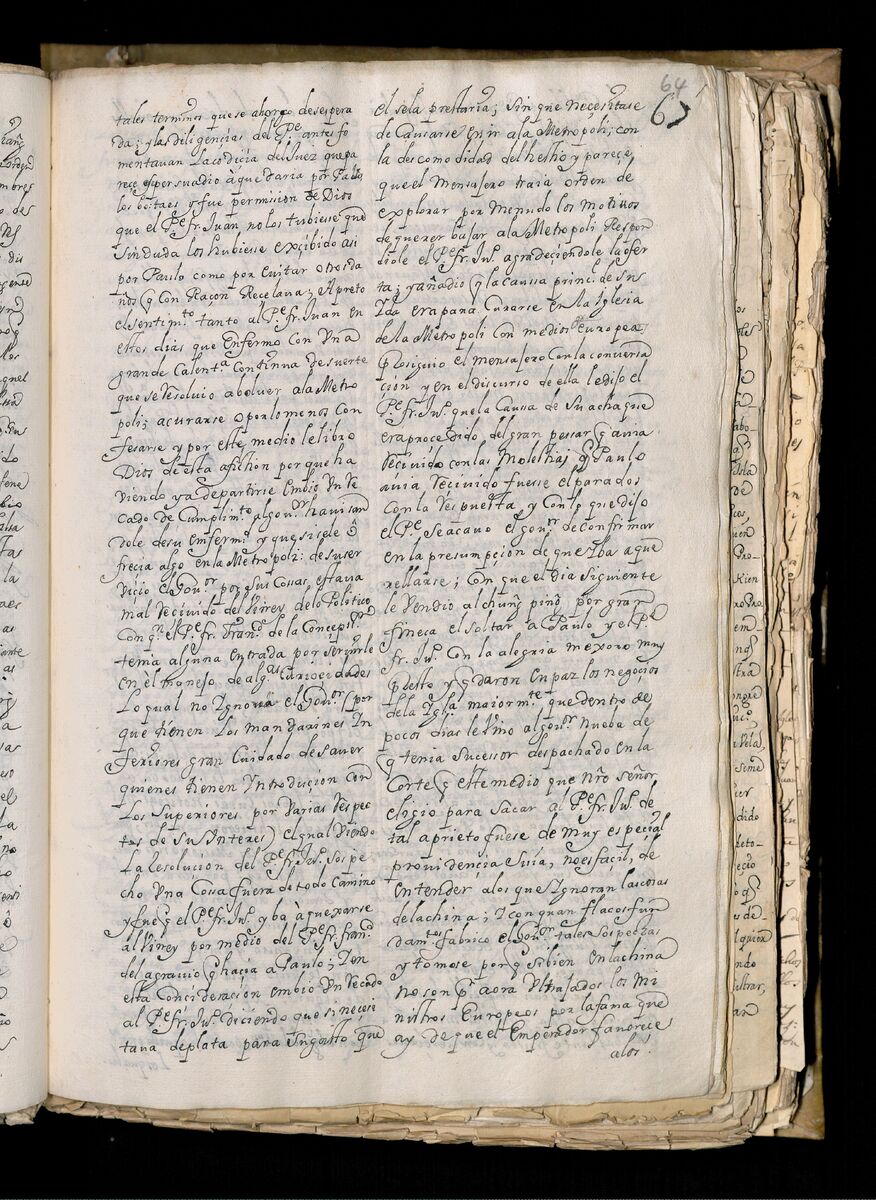 64
63
tales terminos que se ahorco desespera
da; y las diligencias del Pe. antes fo
mentauan la codicia del Juez que pa
rece se persuadio à que daria por Paulo
los botaes y fue permision de Dios
que el Pe. fr. Juan no los tubiese que
sin duda los hubiese exçibido asi
por Paulo como por euitar otros da
ños q Con Racon Recelaua; Apreto
el sentimto. tanto al Pe. fr. Juan en
estos dias que enfermo con Vna
grande Calenta. Continua de suerte
que se resoluio a boluer a la Metro
poli; a curarse o por lo menos con
fesarse y por este medio le libro
Dios de esta aflicion por que ha
viendo ya de partirse embio Vn Re
cado de Cumplimto. al gour. hauisan
dole de su enfermd. y que si se le o
frecia algo en la Metropoli: de su ser
vicio el Gour. por sus cosas estaua
mal Recivido del Virey de lo Politico
Con qn. el Pe. fr. Franco. de la Concepon.
tenia alguna entrada por seruirle
en el manejo de algs. Curiocidades
Lo qual no Ignoraua el Gour. (por
que tienen Los mandarines In
feriores gran Cuidado de sauer
quienes tienen Introducion con
Los Superiores por Varias Respec
tos de su Interes) el qual Viendo
La resolucion del Pe. fr. Jun. sospe
cho Vna Cosa fuera de todo camino
y fue q el Pe. fr. Jun. yba à quexarse
al Virey por medio del Pe. fr. Franco.
del agrauio q hacia a Paulo; Y en
esta Concideracion embio Vn recado
al Pe. fr. Jun. diciendo que si necesi
taua de plata para su gasto que
el se la prestaria; sin que necesitase
de Cansarse en ir a la Metropoli; con
la descomodidad del hecho y parece
que el mensajero traia orden de
explorar por menudo los motiuos
de querer bajar a la Metropoli Respon
diole el Pe. fr. Jun. agradeciendole la ofer
ta; y añadio q la caussa princl. de su
Ida era para Curarse en la Iglesia
de la Metropoli con medico europea
prosiguio el mensajero con la conuersa
cion y en el discurso de ella le dijo el
Pe. fr. Jun. que la Causa de su achaque
era procedido del gran pessar q auia
recivido con las molestias q Paulo
auia recivido fuesse el parados
Con la respuesta, y con lo que dijo
el Pe. se acauo el gour. de confirmar
en la presumpcion de que iba a que
rellarse; Con que el dia siguiente
le vendio al chung pino por gran
fineca el soltar a Paulo y el Pe.
fr. Jun. Con la alegria mexoro muy
presto y quedaron en paz los negocios
de la Iglesia. maiormte. que dentro de
pocos dias le vino al gour. nueba de
q tenia sucessor despachado en la
Corte q este medio que nro señor
eligio para sacar al Pe. fr. Jun. de
tal aprieto fuese de muy especial
prouidencia suia, no es facil, de
entender a los que Ignoran las cosas
de la china; Y con quan flacos fun
damtos. fabrico el Gour. tales sospechas
y tomose por q si bien en la china
no son pa. aora Vltrajados los mi
nistros Europeos por la fama que
ay de que el Emperador fauorece
a los